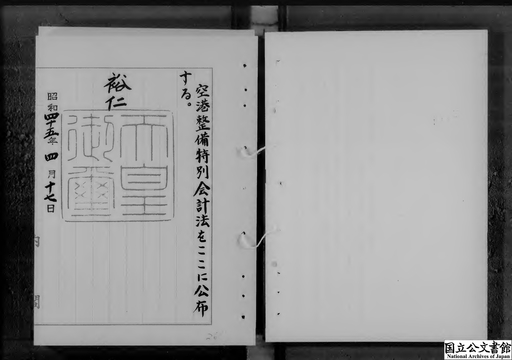 空港整備特別会計法をここに公布
する。
裕仁
天皇
御璽
昭和四十五年四月十七日
内閣
国立公文書館
National Archives of Japan